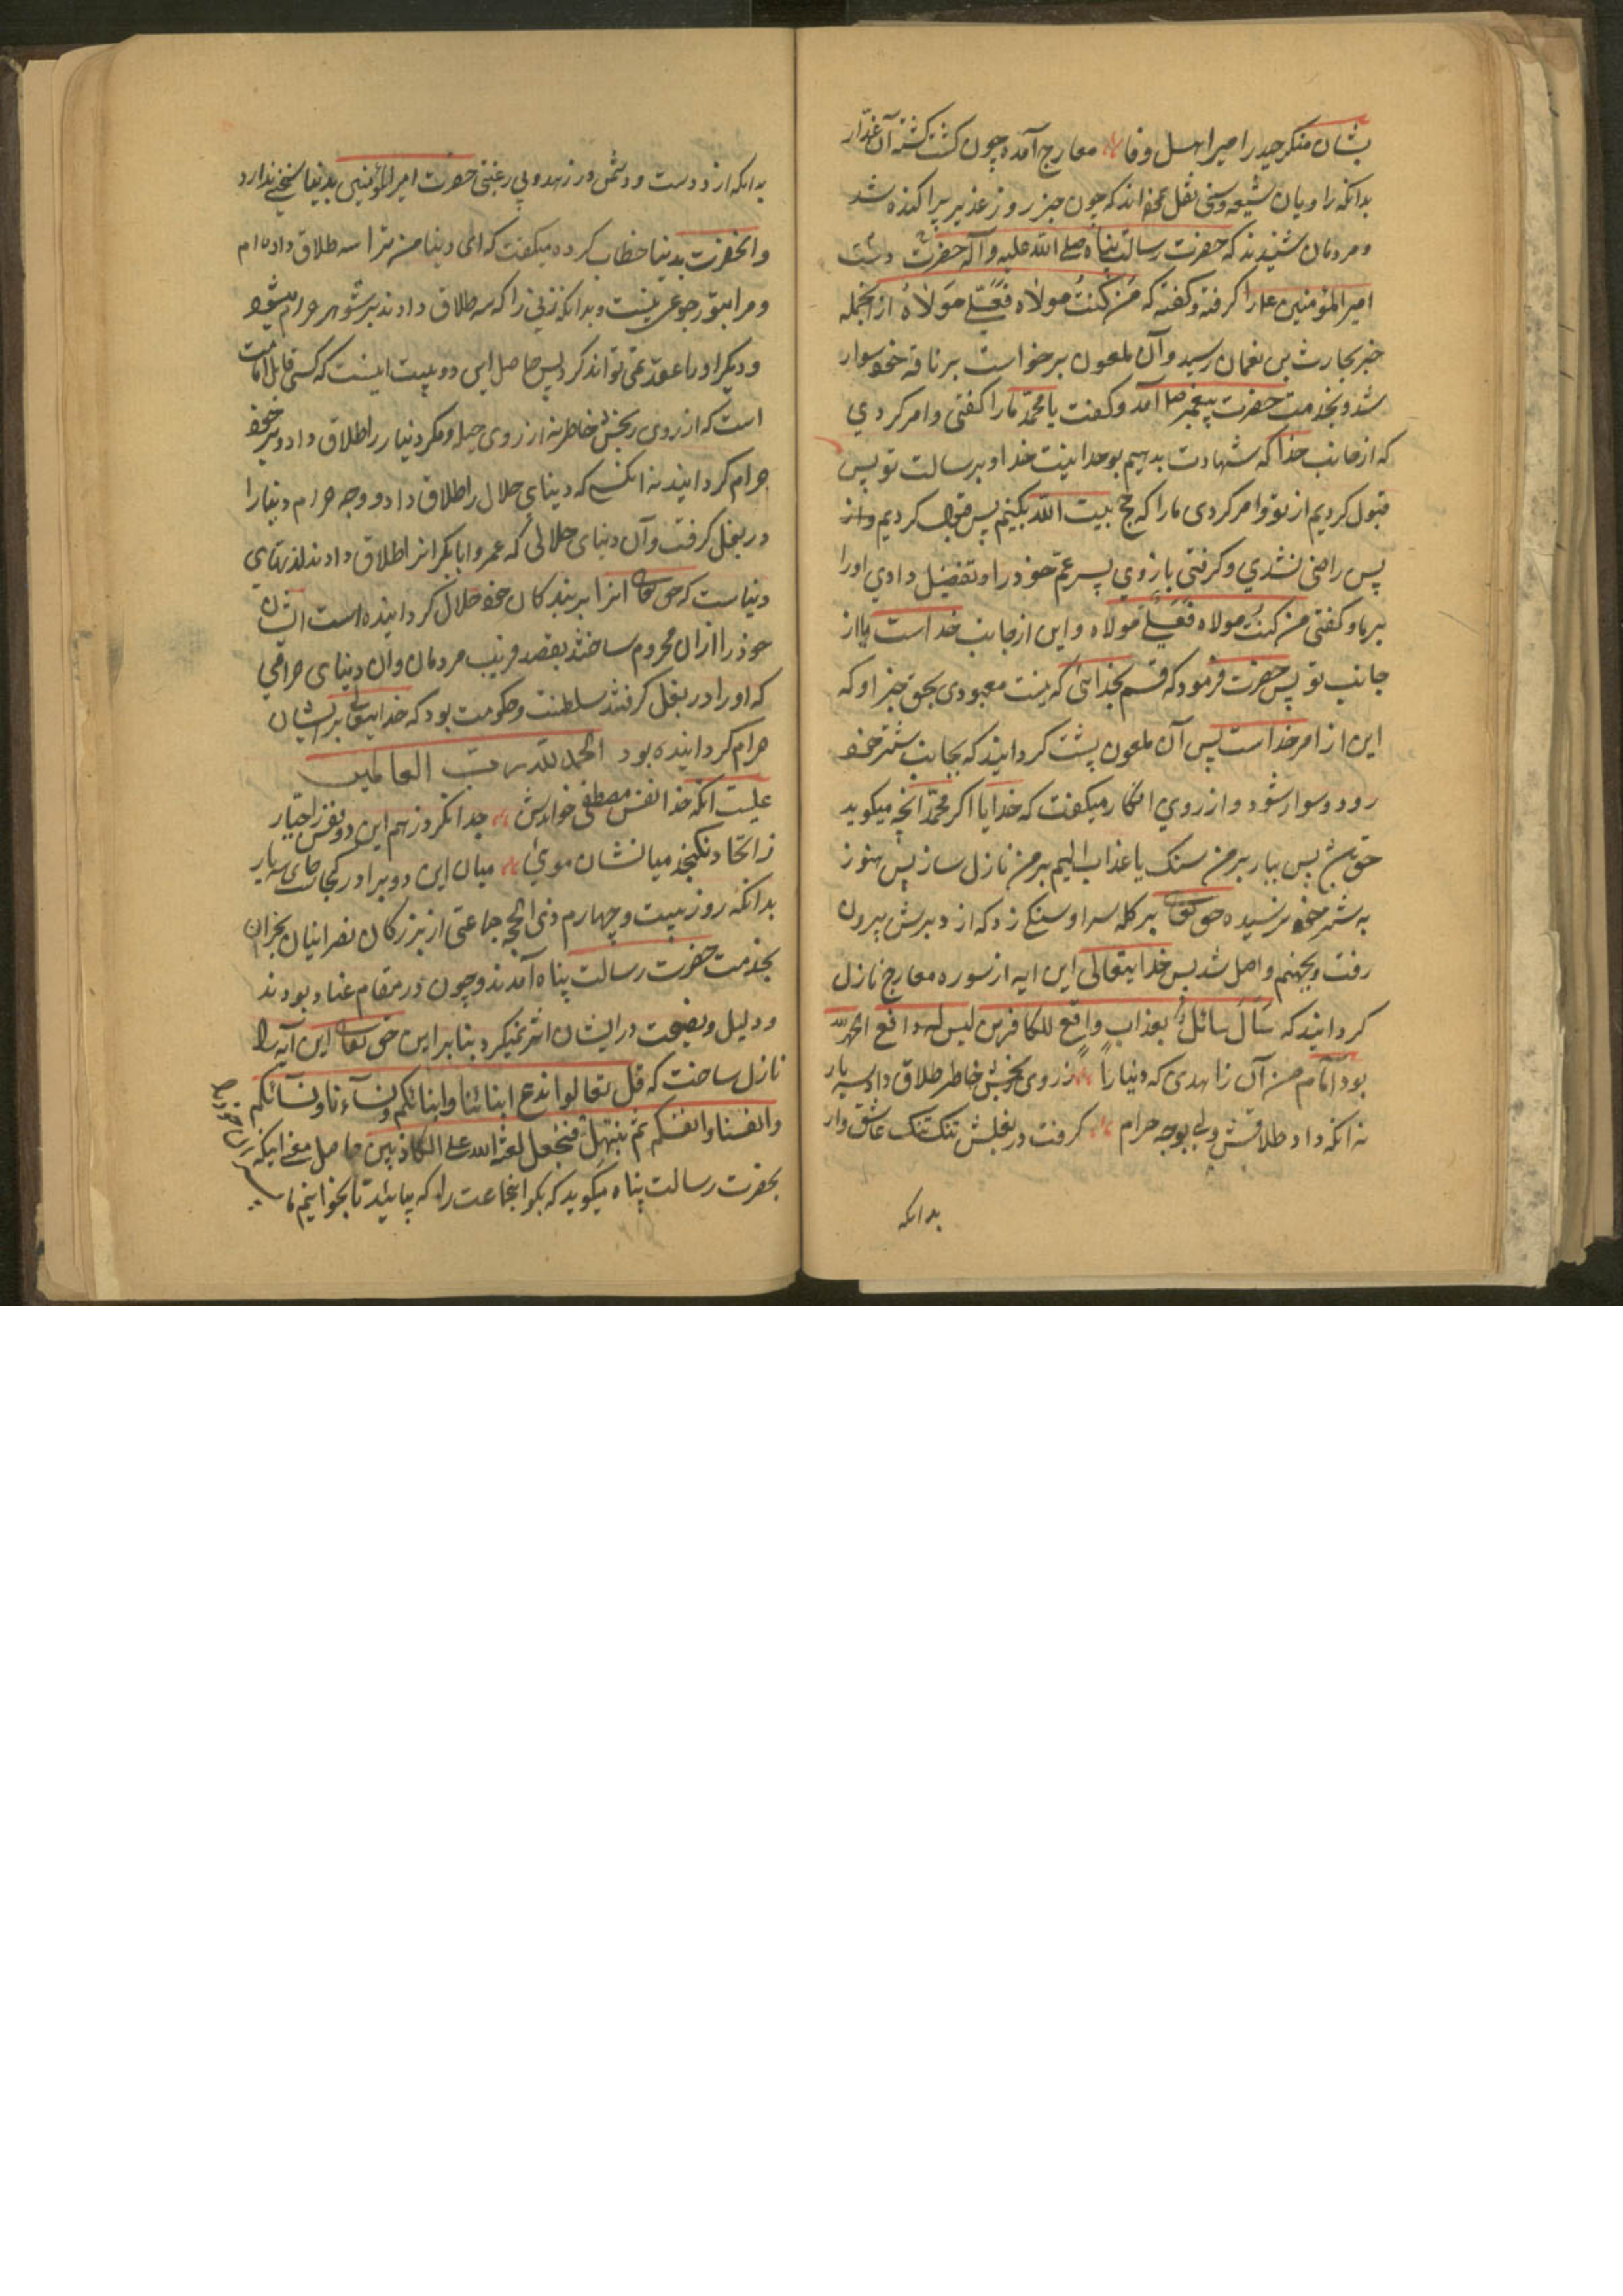 بشان منکر حیدر امیر اهل وفا معارج آمده چون کشت کشته آن غدار
بدانکه راویان شیعه و سنی نقل نموده اند که چون خبر روز غدیر پراکنده شد
و مردمان شنیدند که حضرت رسالت پناه صلی الله علیه و آله حضرت دست
امیرالمؤمنین علی را کرفته و کفته که من کنت مولاه فعلی مولاه از انجمله
خبر بحارث بن نعمان رسید و آن ملعون برخواست بر ناقه خود سوار
شد و بخدمت حضرت پیغمبر آمد و کفت یا محمد ما را کفتی و امر کردی
که از جانب خدا که شهادت بدهیم بوحدانیت خدا و برسالت تو پس
قبول کردیم از تو و امر کردی ما را که حج بیت الله بکنیم پس قبول کردیم و از
پس راضی نشدی و کرفتی بازوی پسر عم خود را و تفضیل دادی او را
بر ما و کفتی من کنت مولاه فعلی مولاه و این از جانب خداست یا از
جانب تو پس حضرت فرمود که قسم بخدائی که نیست معبودی بحق جز او که
این از امر خداست پس آن ملعون پشت کردانید که بجانب شتر خود
رود و سوار شود و از روی انکار میکفت که خدایا اکر محمد آنچه میکوید
حق پس ببار بر من سنک یا عذاب الیم بر من نازل ساز پس هنوز
به شتر خود نرسیده حق تعالی بر کله سر او سنکی زد که از دبرش بیرون
رفت و بجهنم واصل شد پس خدایتعالی این ایه از سوره معارج نازل
کردانید که سأل سائل بعذاب واقع للکافرین لیس له دافع الحمدلله
بود امام من آن زاهدی که دنیا را ز روی رنجش خاطر طلاق داد سه بار
نه انکه داد طلاقش ولی بوجه حرام کرفت در بغلش تنک تنک عاشق وار
بدانکه
بدانکه از دوست و دشمن در زهد و بی رغبتی حضرت امیرالمؤمنین بدنیا سخنی ندارد
و انحضرت بدنیا خطاب کرده میکفت که ای دنیا من ترا سه طلاق داده ام
و مرا بتو رجوعی نیست و بدانکه زنی را که سه طلاق دادند بر شوهر حرام میشود
و دیکر او را عقد نمی تواند کرد پس حاصل این دو بیت اینست که کسی قابل امامت
است که از روی رنجش خاطر نه از روی حیله و مکر دنیا را طلاق داد و بر خود
حرام کردانید نه انکسی که دنیای حلال را طلاق داد و وجه حرام دنیا را
در بغل کرفت و آن دنیای حلالی که عمر و ابابکر انرا طلاق دادند لذتهای
دنیاست که حق تعالی انرا بر بندکان خود حلال کردانیده است ایشان
خود را از آن محروم ساختند بقصد فریب مردمان و آن دنیای حرامی
که او را در بغل کرفتند سلطنت و حکومت بود که خدایتعالی بر ایشان
حرام کردانیده بود الحمد لله رب العالمین
علیست انکه خدا نفس مصطفی خواندش جدا نکرد ز هم این دو نفس را جبار
ز اتحاد نکنجد میانشان موئی میان این دو برادر کجاست جای سه یار
بدانکه روز بیست و چهارم ذی الحجه جماعتی از بزرکان نصرانیان نجران
بخدمت حضرت رسالت پناه آمدند و چون در مقام عناد بودند
و دلیل و نصیحت در ایشان اثر نمیکرد بنا بر این حق تعالی این آیه را
نازل ساخت که قل تعالوا ندع ابنائنا و ابنائکم و نسآءنا و نسآئکم
و انفسنا و انفسکم ثم نبتهل فنجعل لعنة الله علی الکاذبین حاصل معنی اینکه
بحضرت رسالت پناه میکوید که بکو انجماعت را که بیائید تا بخوانیم ما